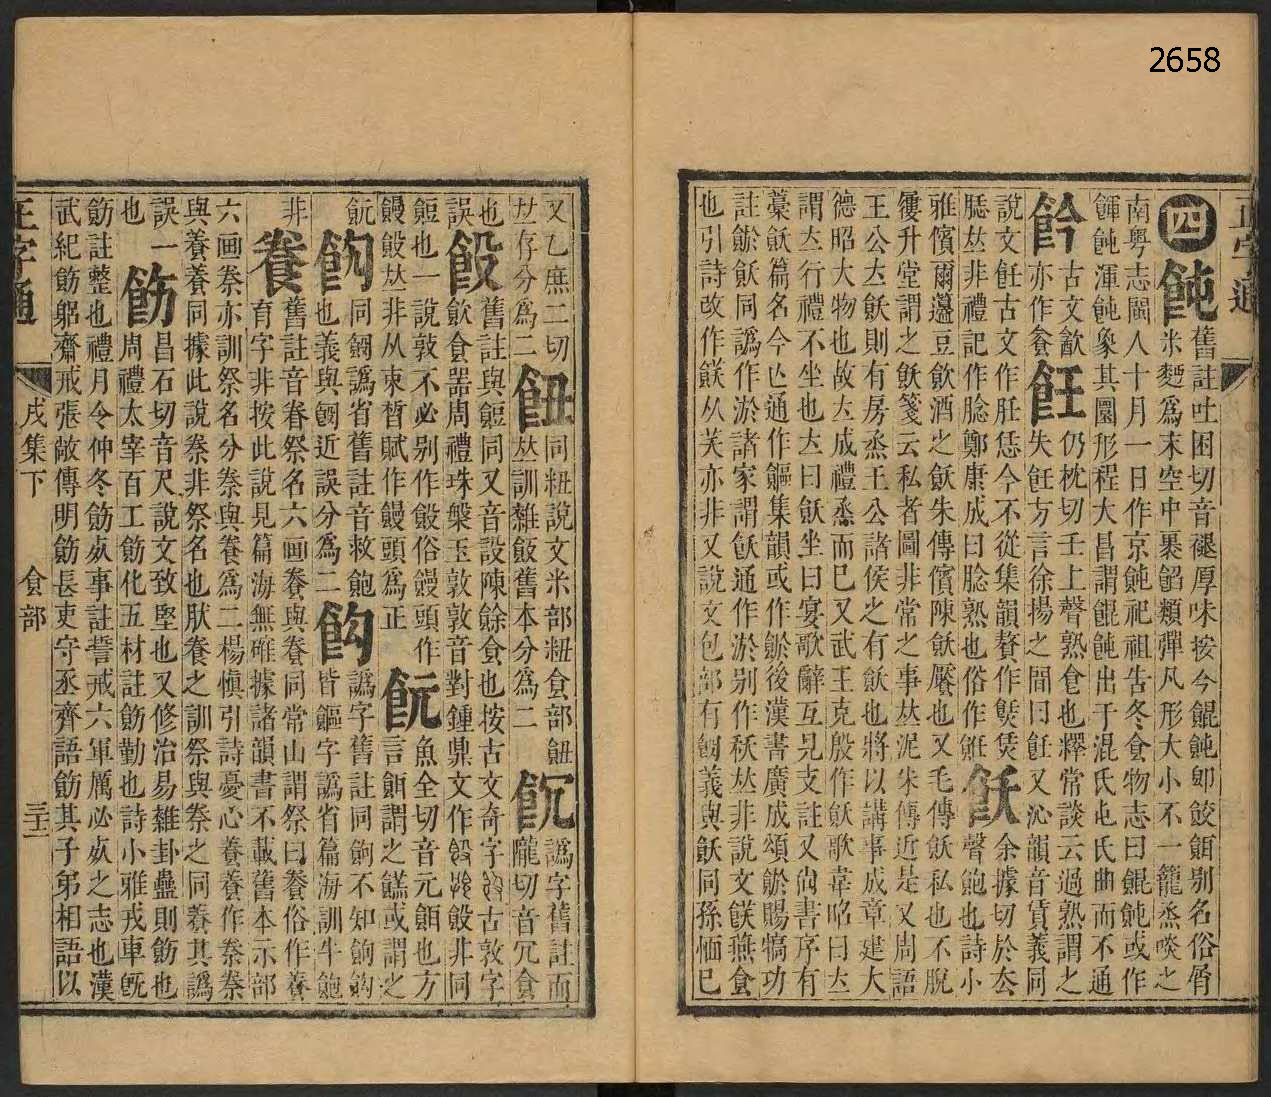 2658
正字通
四 飩 舊註吐困切音褪厚味按今餛飩卽餃餌别名俗屑
米麪爲末空中裹餡類彈凡形大小不一籠烝啖之
南粤志閩人十月一日作京飩祀祖告冬食物志曰餛飩或作
餫飩渾飩象其圓形程大昌謂餛飩出于混氏屯氏曲而不通
飸 古文歙亦作飡 飪 仍枕切壬上聲熟食也釋常談云過熟謂之
失飪方言徐揚之間曰飪又沁韻音賃義同
說文飪古文作肝恁今不從集韻贅作㷼烎 飫 余據切於去
聲飽也詩小
胹𠀤非禮記作腍鄭康成曰腍熟也俗作餁
雅儐爾籩豆飲酒之飫朱傳儐陳飫饜也又毛傳飫私也不脫
屨升堂謂之飫箋云私者圖非常之事𠀤泥朱傳近是又周語
王公立飫則有房烝王公諸侯之有飫也將以講事成章建大
德昭大物也故立成禮烝而已又武王克殷作飫歌韋昭曰立
謂立行禮不坐也立曰飫坐曰宴歌辭互見支註又尙書序有
藁飫篇名今亾通作饇集韻或作䬽後漢書廣成頌䬽賜犒功
註䬽飫同譌作淤諸家謂飫通作淤别作秗𠀤非說文䬼燕食
也引詩改作䬼从芺亦非又說文包部有匓義與飫同孫愐巳
又乙庶二切 飷 同粈說文米部粈食部飷 𩚬 譌字舊註而
隴切音冗食
𠀤存分爲二 𠀤訓雜飯舊本分爲二
也 㱽 舊註與䭃同又音設陳餘食也按古文奇字古敦字
飲食器周禮珠槃玉敦敦音對鍾鼎文作㱽非同
誤
䭃也一說敦不必别作㱽俗饅頭作 飦 魚全切音元餌也方
言餌謂之䭓或謂之
饅㱽𠀤非从束晳賦作饅頭爲正
飦 飹 同匓譌省舊註音救飽 飹 譌字舊註同飹不知飹飹
也義與匓近誤分爲二 皆饇字譌省篇海訓牛飽
非 養 舊註音眷祭名六画養與養同常山謂祭曰養俗作養
育字非按此說見篇海無確據諸韻書不載舊本示部
六画祭亦訓祭名分祭與養爲二楊愼引詩憂心養養作祭祭
與養養同據此說祭非祭名也肰養之訓祭與祭之同養其譌
誤一 飭 昌石切音尺說文致堅也又修治易雜卦蠱則飭也
也 周禮太宰百工飭化五材註飭勤也詩小雅戎車旣
飭註整也禮月令仲冬飭𡙇事註誓戒六軍厲必𡙇之志也漢
武紀飭躬齋戒張敞傳明飭長吏守丞齊語飭其子弟相語以
正字通
戌集下 食部
三十二